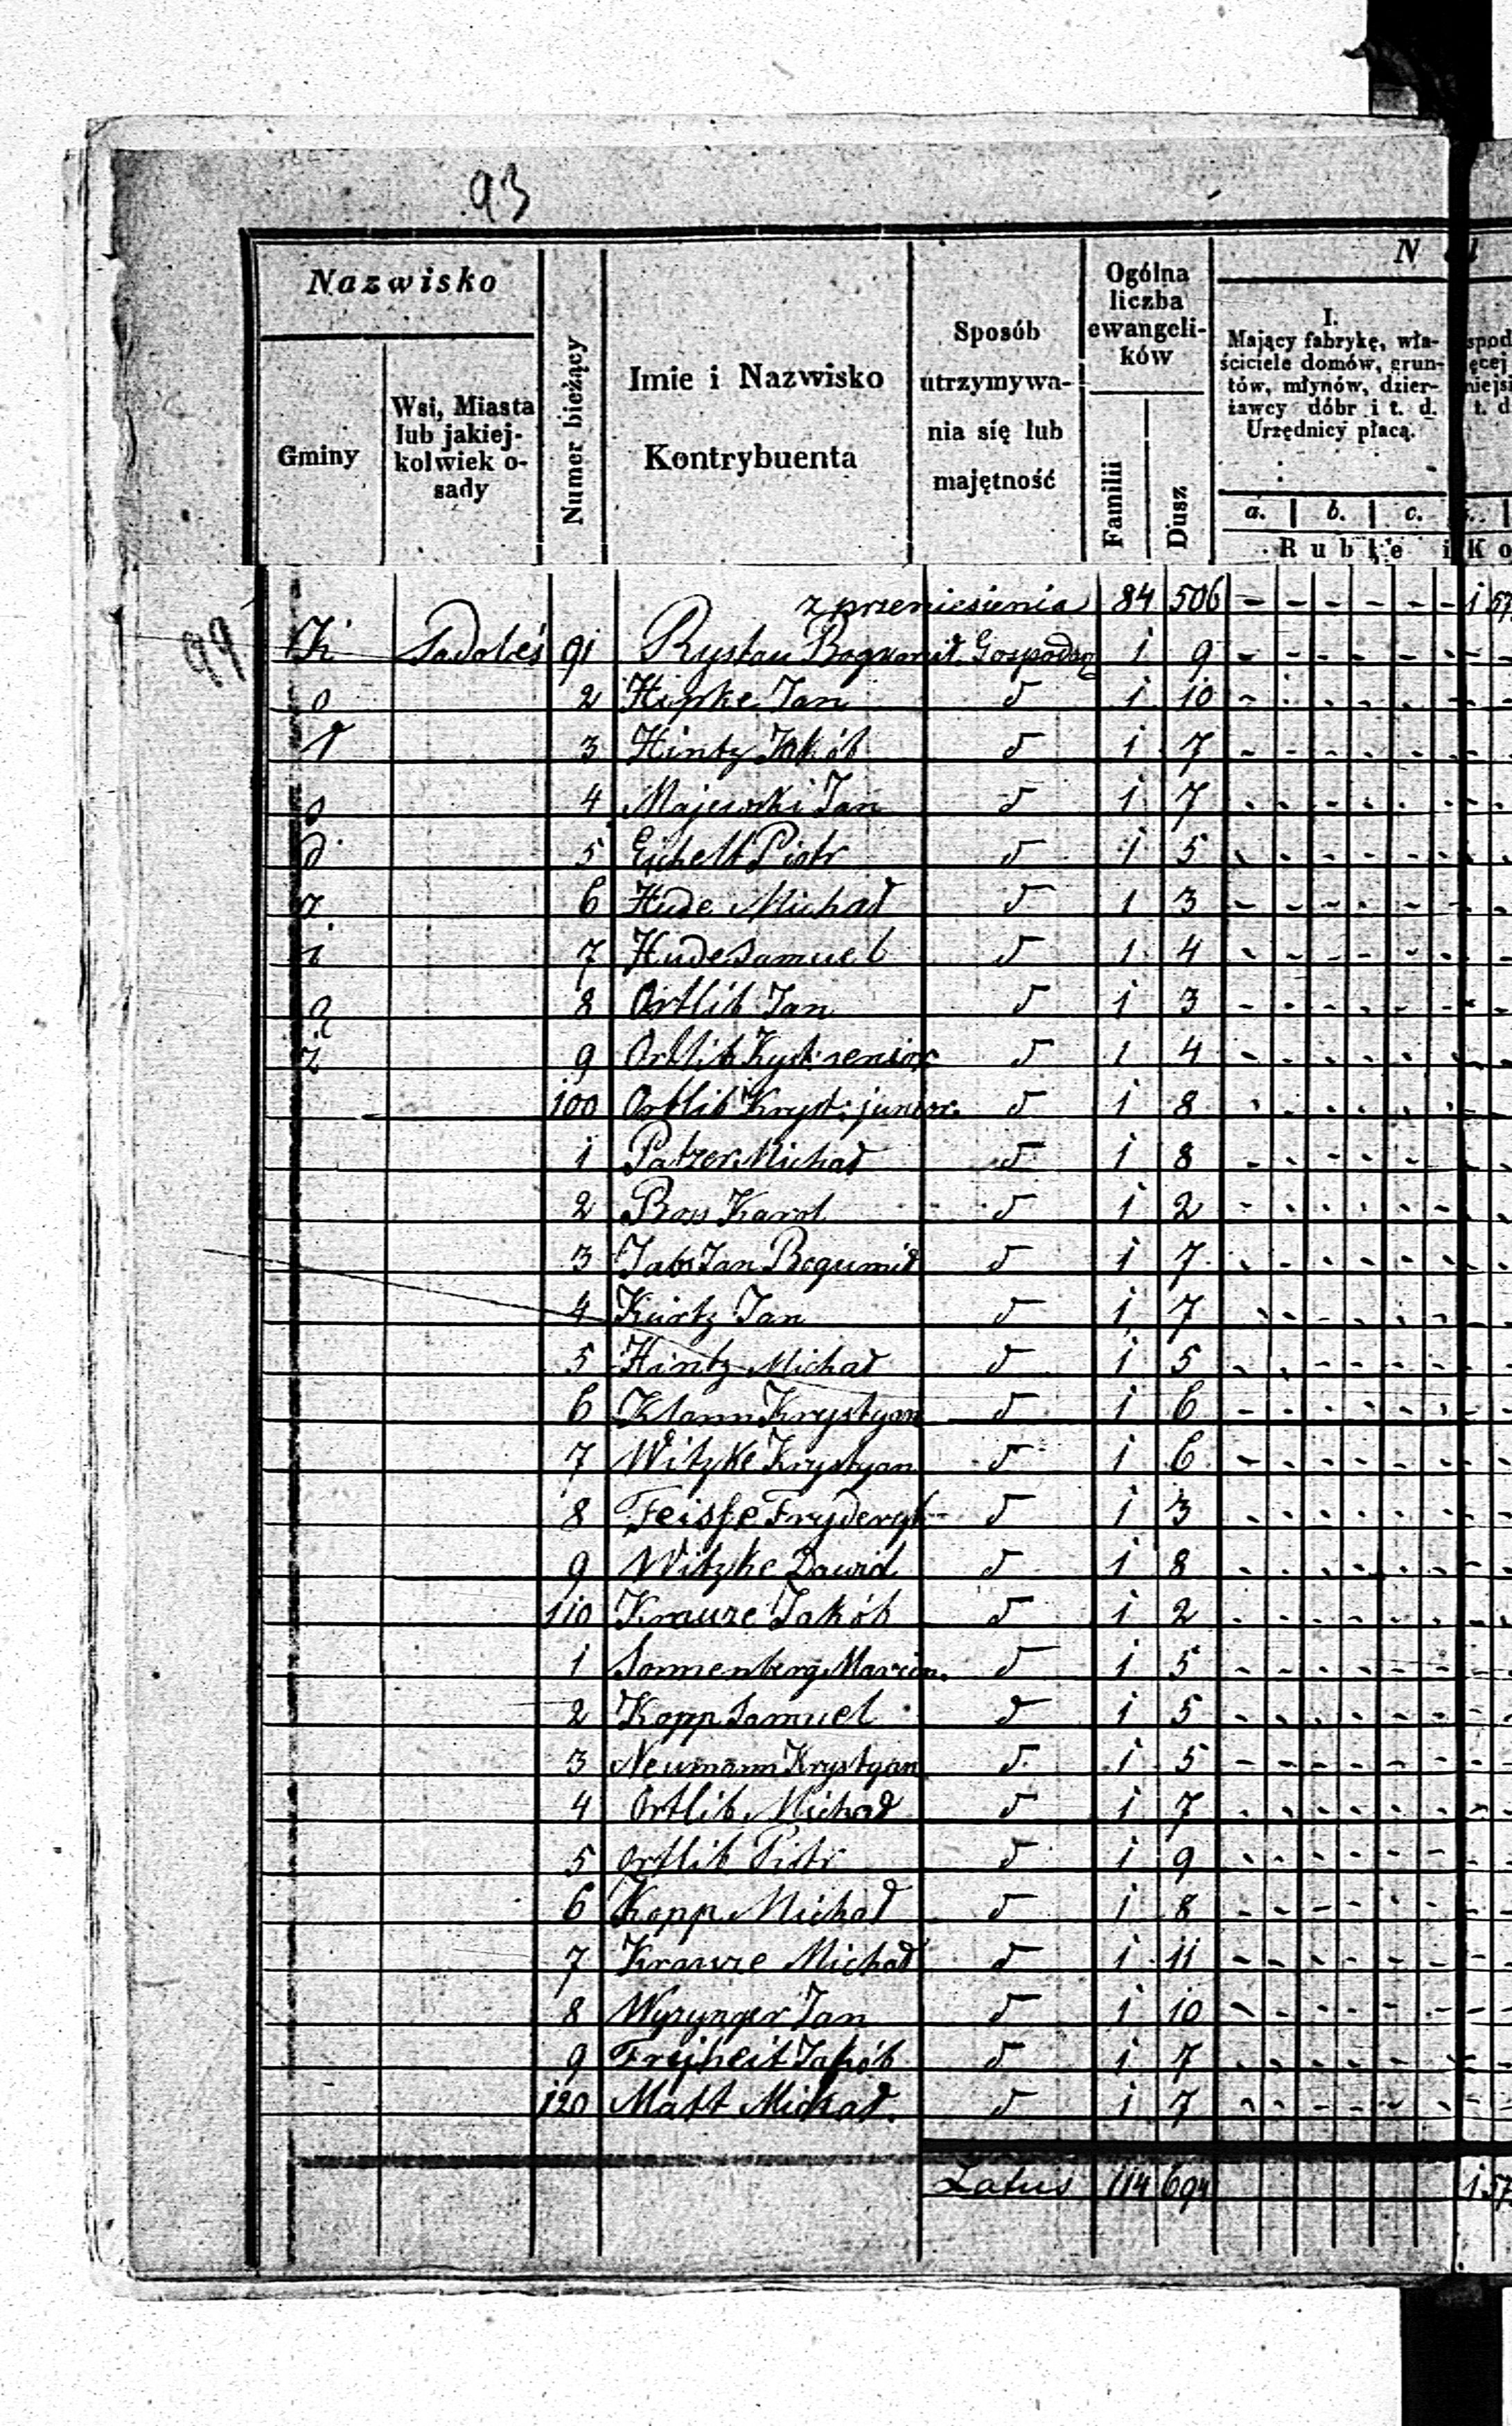 93
Nazwisko
Gminy
Wsi, Miasta lub jakiej- kolwiek o- sady
Numer bieżący
Imie i Nazwisko Kontrybuenta
Sposób utrzymywa- nia się lub majętność
Ogólna liczba ewangeli- ków
Familii
Dusz
N
I.
Mający fabrykę, wła-
ściciele domów, grun-
tów, młynów, dzier-
żawcy dóbr i t. d.
Urzędnicy płacą.
a. b. c.
Rubłe i Ko
z przeniesienia 84 506 - - - - - -
K 91 Rystau Gospodar 1 9 - - - - - -
o 2 Hipke Jan d 1 10 - - - - - -
3 Hintz Jakób d 1 7 - - - - - -
o 4 Majewski Jan d 1 7 - - - - - -
d 5 Piotr d 1 5 - - - - - -
r 6 Hude Michał d 1 3 - - - - - -
i 7 Hude Samuel d 1 4 - - - - - -
ą 8 Ortlib Jan d 1 3 - - - - - -
ż 9 Ortlib Kryst: senior d 1 4 - - - - - -
100 Ortlib Kryst: junior. d 1 8 - - - - - -
1 Patzer Michał d 1 8 - - - - -
2 Karol d 1 2 - - - - - -
3 Jabs Jan Bogumił d 1 7 - - - - - -
4 Kurtz Jan d 1 7 - - - - -
5 Hintz Michał d 1 5 - - - - - -
6 Klann Krystyan d 1 6 - - - - - -
7 Witzke Krystyan d 1 6 - - - - - -
8 Feisse Fryderyk d 1 3 - - - - - -
9 Witzke Dawid d 1 8 - - - - - -
110 Krauze Jakób d 1 2 - - - - - -
1 Sonnenberg Marcin. d 1 5 - - - - - -
2 Kopp Samuel d 1 5 - - - - - -
3 Neumann Krystyan d 1 5 - - - - - -
4 Ortlib Michał d 1 7 - - - - - -
5 Ortlib Piotr d 1 9 - - - - - -
6 Kopp Michał d 1 8 - - - - - -
7 Krauze Michał d 1 11 - - - - - -
8 Jan d 1 10 - - - - - -
9 Frejheit Jakób d 1 7 - - - - - -
120 Matt Michał. d 1 7 - - - - - -
Latus 114 694